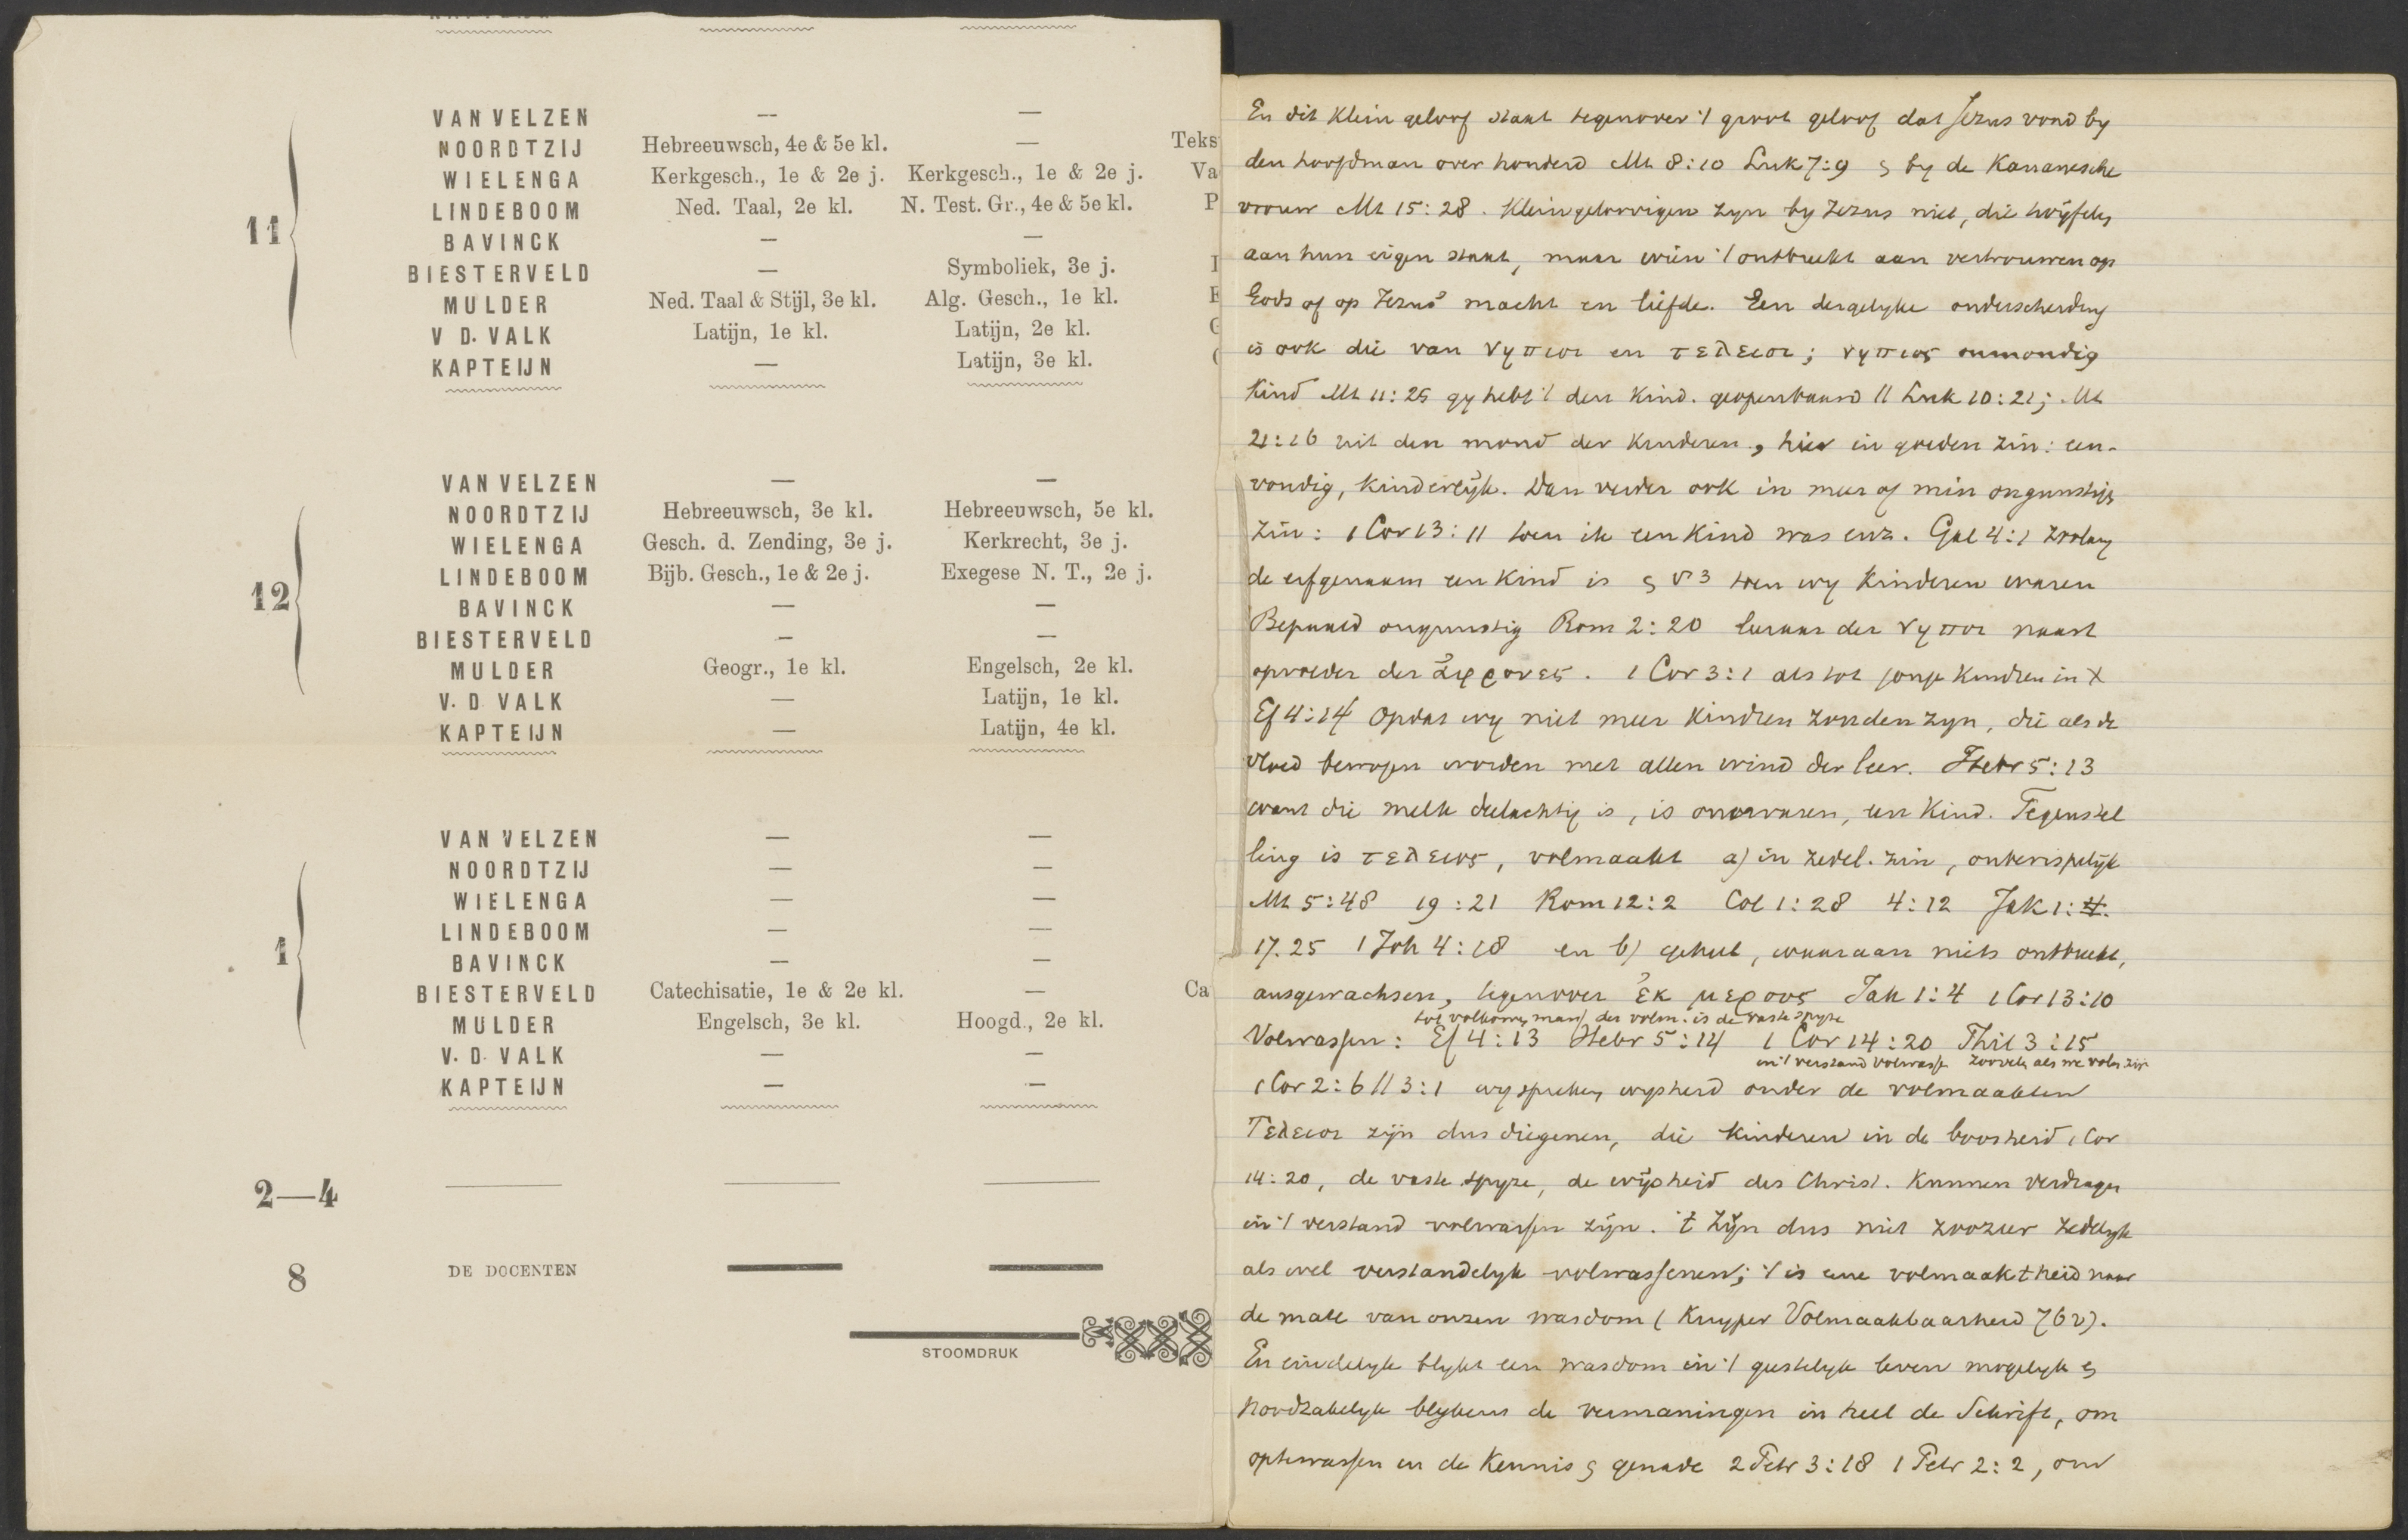 VAN VELZEN — —
NOORDTZIJ Hebreeuwsch, 4e & 5e kl. — Teks
WIELENGA Kerkgesch., 1e & 2e j. Kerkgesch., 1e & 2e j. Va
LINDEBOOM Ned. Taal, 2e kl. N. Test. Gr., 4e & 5e kl. P
11 BAVINCK — —
BIESTERVELD — Symboliek, 3e j.
MULDER Ned. Taal & Stijl, 3e kl. Alg. Gesch., 1e kl.
V D. VALK Latijn, 1e kl. Latijn, 2e kl.
KAPTEIJN — Latijn, 3e kl.
VAN VELZEN — —
NOORDTZIJ Hebreeuwsch, 3e kl. Hebreeuwsch, 5e kl.
WIELENGA Gesch. d. Zending, 3e j. Kerkrecht, 3e j.
LINDEBOOM Bijb. Gesch., 1e & 2e j. Exegese N. T., 2e j.
12 BAVINCK — —
BIESTERVELD — —
MULDER Geogr., 1e kl. Engelsch, 2e kl.
V. D VALK — Latijn, 1e kl.
KAPTEIJN — Latijn, 4e kl.
VAN VELZEN — —
NOORDTZIJ — —
WIELENGA — —
LINDEBOOM — —
1 BAVINCK — —
BIESTERVELD Catechisatie, 1e & 2e kl. — Ca
MULDER Engelsch, 3e kl. Hoogd., 2e kl.
V. D. VALK — —
KAPTEIJN — —
2—4
8 DE DOCENTEN
STOOMDRUK
En dit klein geloof staat tegenover 't groot geloof dat Jezus vond by
den hoofdman over honderd Mt 8:10 Luk 7:9 en by de Kananesche
vrouw Mt 15:28. Kleingeloovigen zyn by Jezus niet, die twijfelen
aan hun eigen staat, maar wien 't ontbreekt aan vertrouwen op
Gods of op Jezus' macht en liefde. Een dergelyke onderscheiding
is ook die van νηπιοι en τελειοι; νηπιος onmondig
kind Mt 11:25 gy hebt 't den kind. geopenbaard // Luk 10:21; Mt
21:16 uit den mond der kinderen, hier in goeden zin: een-
voudig, kinderlijk. Dan verder ook in meer of min ongunstigen
zin: 1 Cor 13:11 toen ik een kind was enz. Gal 4:1 zoolang
de erfgenaam een kind is en v 3 toen wy kinderen waren
Bepaald ongunstig Rom 2:20 leeraar der νηπιοι naast
opvoeder der ἀφρονες. 1 Cor 3:1 als tot jonge kinderen in X
Ef 4:14 Opdat wy niet meer kinderen zouden zyn, die als de
vloed bewogen worden met allen wind der leer. Hebr 5:13
want die melk deelachtig is, is onervaren, een kind. Tegenstel
ling is τελειος, volmaakt a) in zedel. zin, onberispelijk
Mt 5:48 19:21 Rom 12:2 Col 1:28 4:12 Jak 1:4.
17.25 1 Joh 4:18 en b) geheel, waaraan niets ontbreekt,
ausgewachsen, tegenover ἐκ μερους Jak 1:4 1 Cor 13:10
tot volkomen man der volm. is de vaste spyze
Volwassen: Ef 4:13 Hebr 5:14 1 Cor 14:20 Phil 3:15
in 't verstand volwassen zoovelen als we volm zijn
1 Cor 2:6 // 3:1 wy spreken wysheid onder de volmaakten
Τελειοι zijn dus diegenen, die kinderen in de boosheid 1 Cor
14:20, de vaste spyze, de wijsheid des Christ. kunnen verdragen
in 't verstand volwassen zijn. 't Zijn dus niet zoozeer zedelyk
als wel verstandelyk volwassenen; 't is eene volmaaktheid naar
de mate van onzen wasdom (Kuyper Volmaakbaarheid 762).
En eindelyk blykt een wasdom in 't geestelyk leven mogelyk en
noodzakelyk blykens de vermaningen in heel de Schrift, om
optewassen in de kennis en genade 2 Petr 3:18 1 Petr 2:2, om